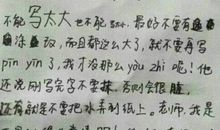 不能写太大也不能 最好不要有
涂改,而且都这么大了,就不要再写
pin yin了,我才没那么you zhi呢!他
还说刚写完字不要抹 否则会很脏
还有就是不要把水弄到纸上。老师,我是